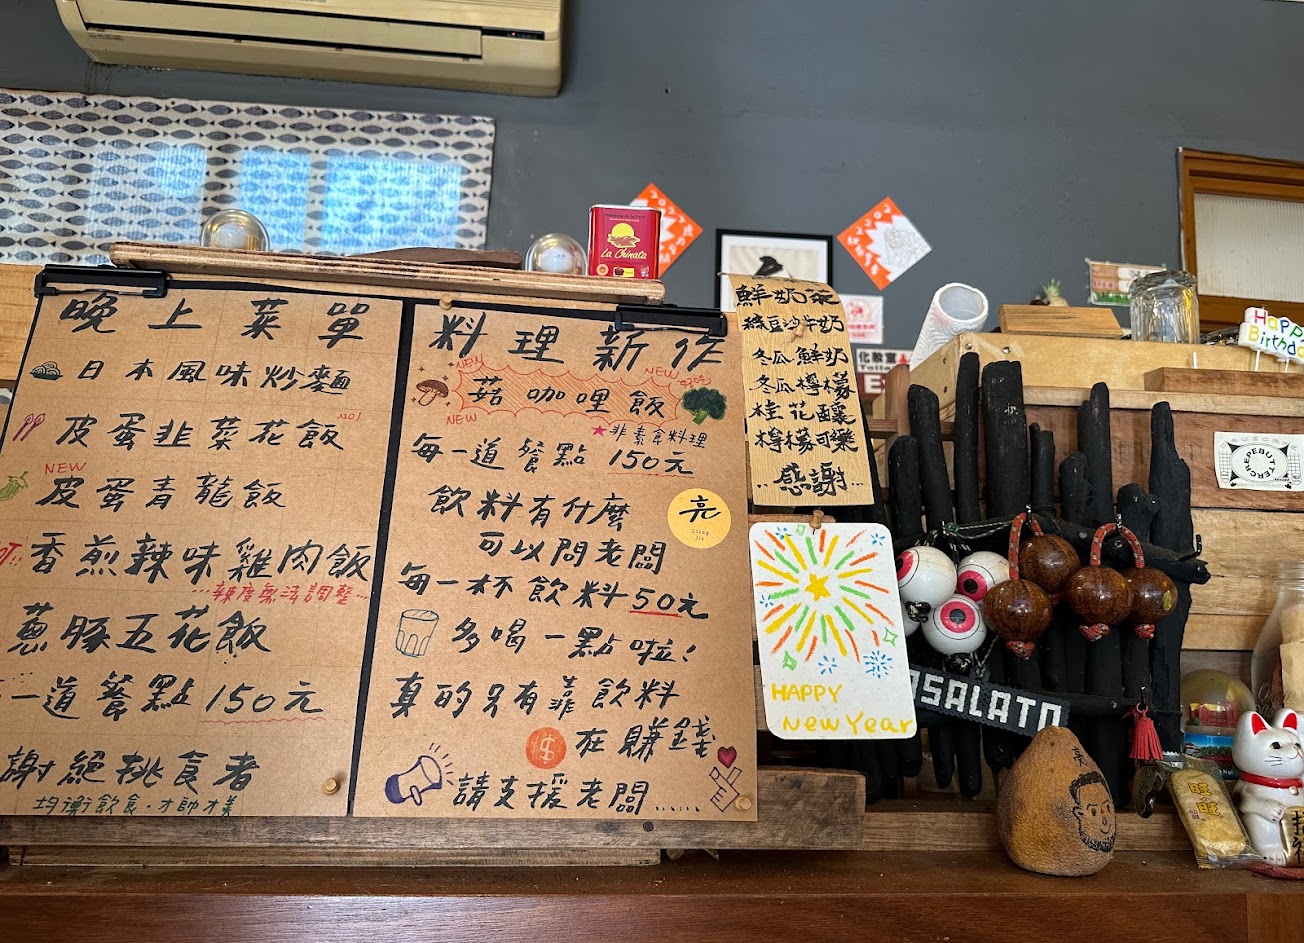 晚上菜單
日本風味炒麵
皮蛋韭菜花飯
NO1
NEW
皮蛋青龍飯
香煎辣味雞肉飯
...辣度無法調整...
蔥豚五花飯
一道餐點150元
謝絕挑食者
均衡飲食·才帥才美
料理新作
NEW
NEW
菇咖哩飯
NEW
★非素食料理
每一道餐點150元
飲料有什麼
可以問老闆
每一杯飲料50元
多喝一點啦!
真的只有靠飲料
在賺錢
請支援老闆......
亮
鮮奶茶
綠豆沙牛奶
冬瓜鮮奶
冬瓜檸檬
桂花釀
檸檬可樂
..感謝...
HAPPY
New Year
La Chinata
化教室
Toilet
EX
ASALATO
Happy
Birthda
CREPEBUTTER
旺旺